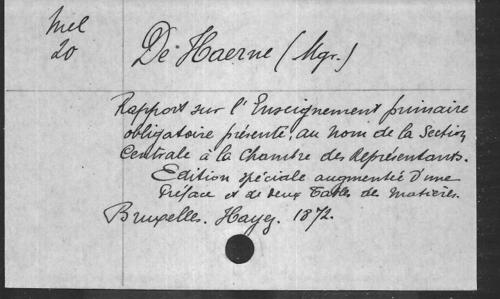 Mel
20
De Haerne (Mgr.)
Rapport sur l'Enseignement primaire
obligatoire présenté, au nom de la Section
Centrale à la Chambre des Représentants.
Edition spéciale augmentée d'une
Préface et de deux Tables de Matières.
Bruxelles. Hayez. 1872.